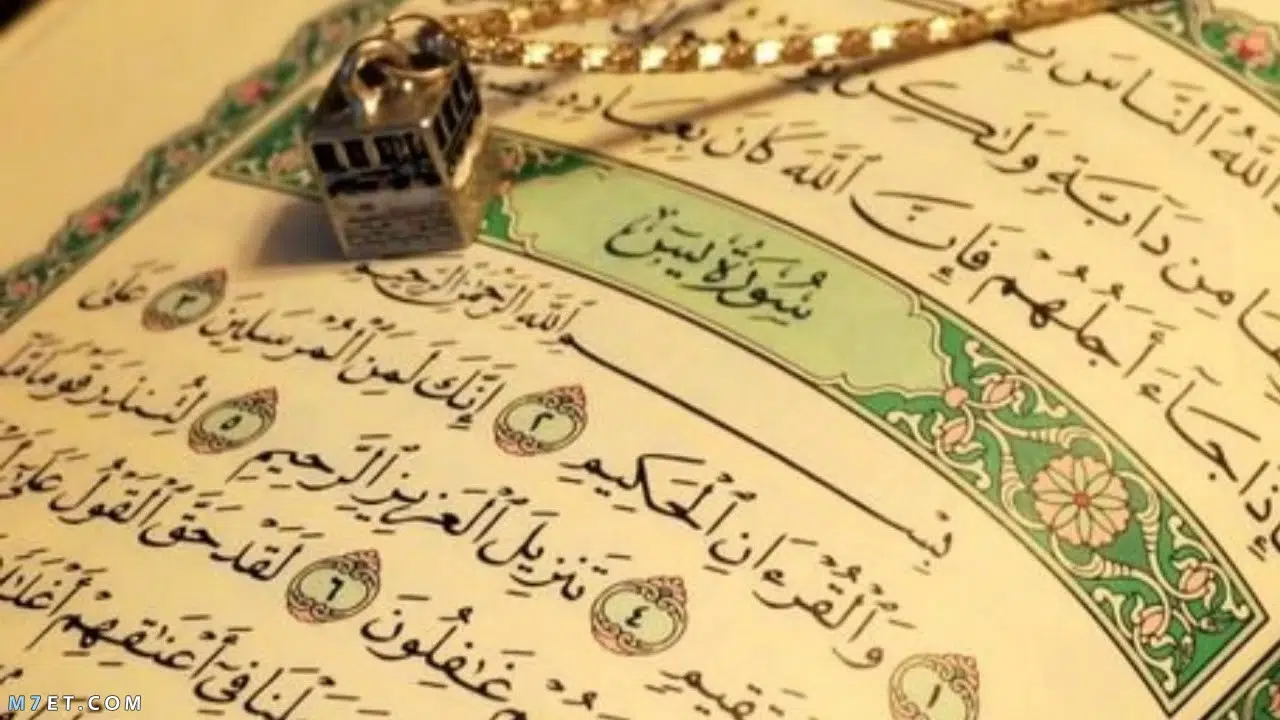 ٱللَّهُ ٱلنَّاسَ
مِن دَآبَّةٍ وَلَٰكِن
جَآءَ أَجَلُهُمْ فَإِنَّ ٱللَّهَ كَانَ بِعِبَادِهِۦ
سُورَةُ يسٓ
بِسْمِ ٱللَّهِ ٱلرَّحْمَٰنِ ٱلرَّحِيمِ
١ وَٱلْقُرْءَانِ ٱلْحَكِيمِ ٢ إِنَّكَ لَمِنَ ٱلْمُرْسَلِينَ ٣ عَلَىٰ
٤ تَنزِيلَ ٱلْعَزِيزِ ٱلرَّحِيمِ ٥ لِتُنذِرَ قَوْمًا مَّآ
غَٰفِلُونَ ٦ لَقَدْ حَقَّ ٱلْقَوْلُ عَلَىٰٓ
فِىٓ أَعْنَٰقِهِمْ
M7ET.COM